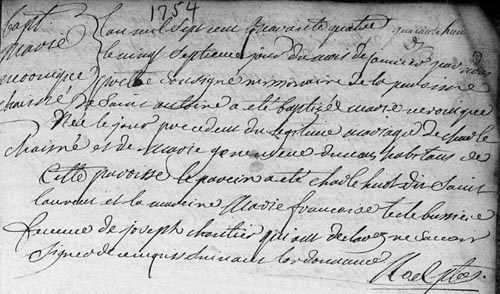 1754
bapt
Marie
veronique
chaisné
L'an mil sept cent quarante quatre
le vingt septieme jour du mois de janvier par nous
prestre soussigné missionaire de la paroisse
de Saint antoine a eté baptizée marie veronique
Née le jour precedent du legitime mariage de charle
Chaisné et de Marie genevieve habitans de
Cette paroisse le parein a eté charle huot dit Saint
laurent et la mareine Marie francoise
femme de joseph qui ont declarez ne scavoir
signer de ce enquis suivant l'ordonnance